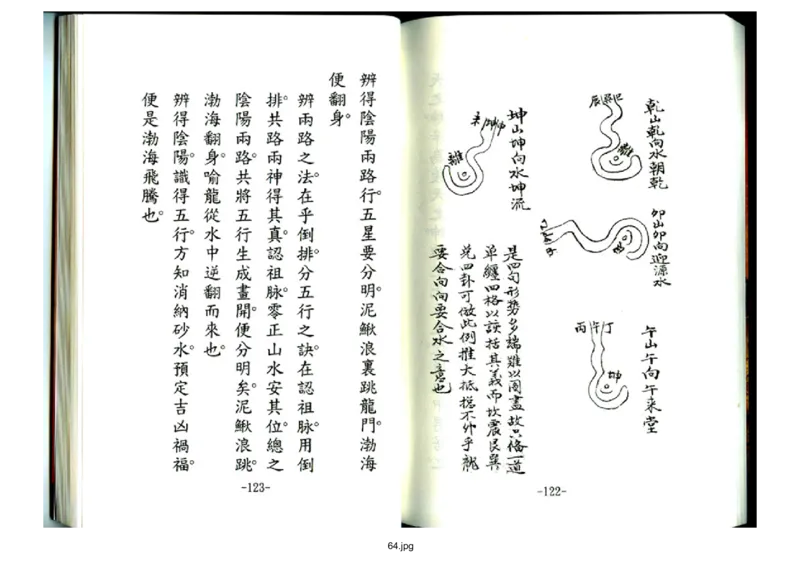 乾山乾向水朝乾
辰巽巳
卯山卯向迎源水
午山午向午來堂
丙午丁
坤
坤山坤向水坤流
未坤申
離
是四句形勢多端難以圖畫故只條一道
單纏四格以該括其義而坎震艮巽
兌四卦可倣此例推大抵揔不外乎龍
要合向向要合水之意也
-122-
辨得陰陽兩路行。五星要分明。泥鰍浪裏跳龍門。渤海
便翻身。
辨兩路之法。在乎倒排。分五行之訣。在認祖脉。用倒
排。共路兩神得其真。認祖脉。零正山水安其位。總之
陰陽兩路。共將五行生成畫開。便分明矣。泥鰍浪跳。
渤海翻身。喻龍從水中逆翻而來也。
辨得陰陽。識得五行。方知消納砂水。預定吉凶禍福。
便是渤海飛騰也。
-123-
64.jpg